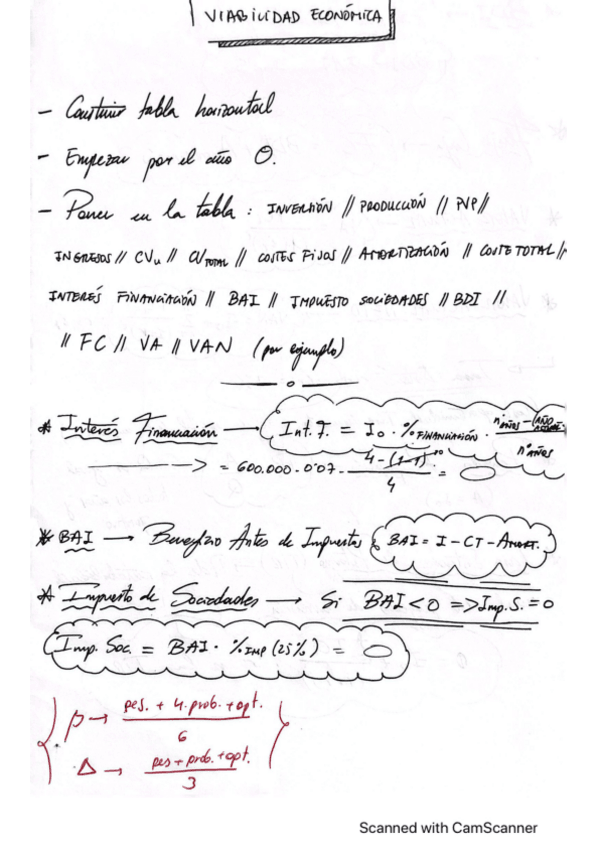 VIABILIDAD ECONÓMICA
- Construir tabla horizontal
- Empezar por el año 0.
- Poner en la tabla : INVERSIÓN // PRODUCCIÓN // PVP //
INGRESOS // CVu // CVTOTAL // COSTES FIJOS // AMORTIZACIÓN // COSTE TOTAL //
INTERÉS FINANCIACIÓN // BAI // IMPUESTO SOCIEDADES // BDI //
// FC // VA // VAN (por ejemplo)
* Interés Financiación → Int. F. = I0 · %FINANCIACIÓN · nºAÑOS - (AÑO / nº AÑOS
→ = 600.000 · 0'07 · 4-(1-1) / 4 =
* BAI → Beneficio Antes de Impuestos BAI = I - CT - AMORT.
* Impuesto de Sociedades → Si BAI < 0 => Imp. S. = 0
Imp. Soc. = BAI · %IMP (25%) =
β → pes. + 4·prob. + opt. / 6
Δ → pes + prob. + opt. / 3
Scanned with CamScanner